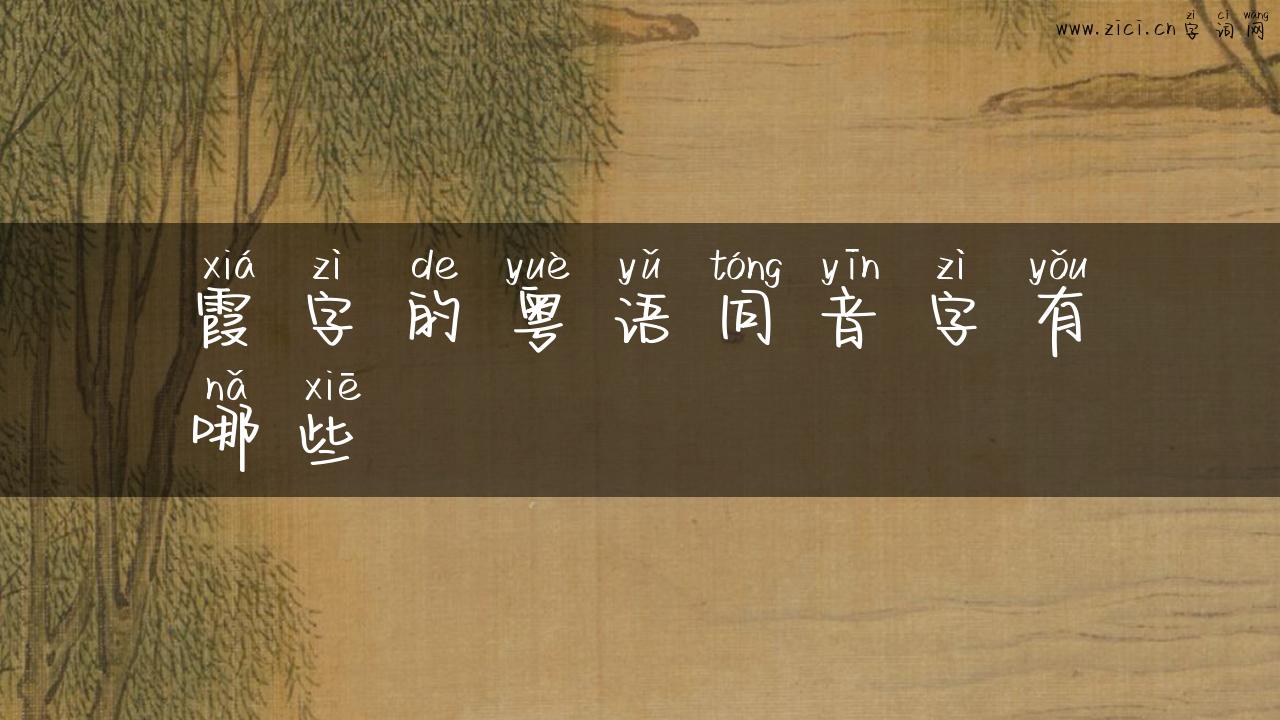 zì cí wǎng
www.zici.cn 字词网
xiá zì de yuè yǔ tóng yīn zì yǒu
霞字的粤语同音字有
nǎ xiē
哪些